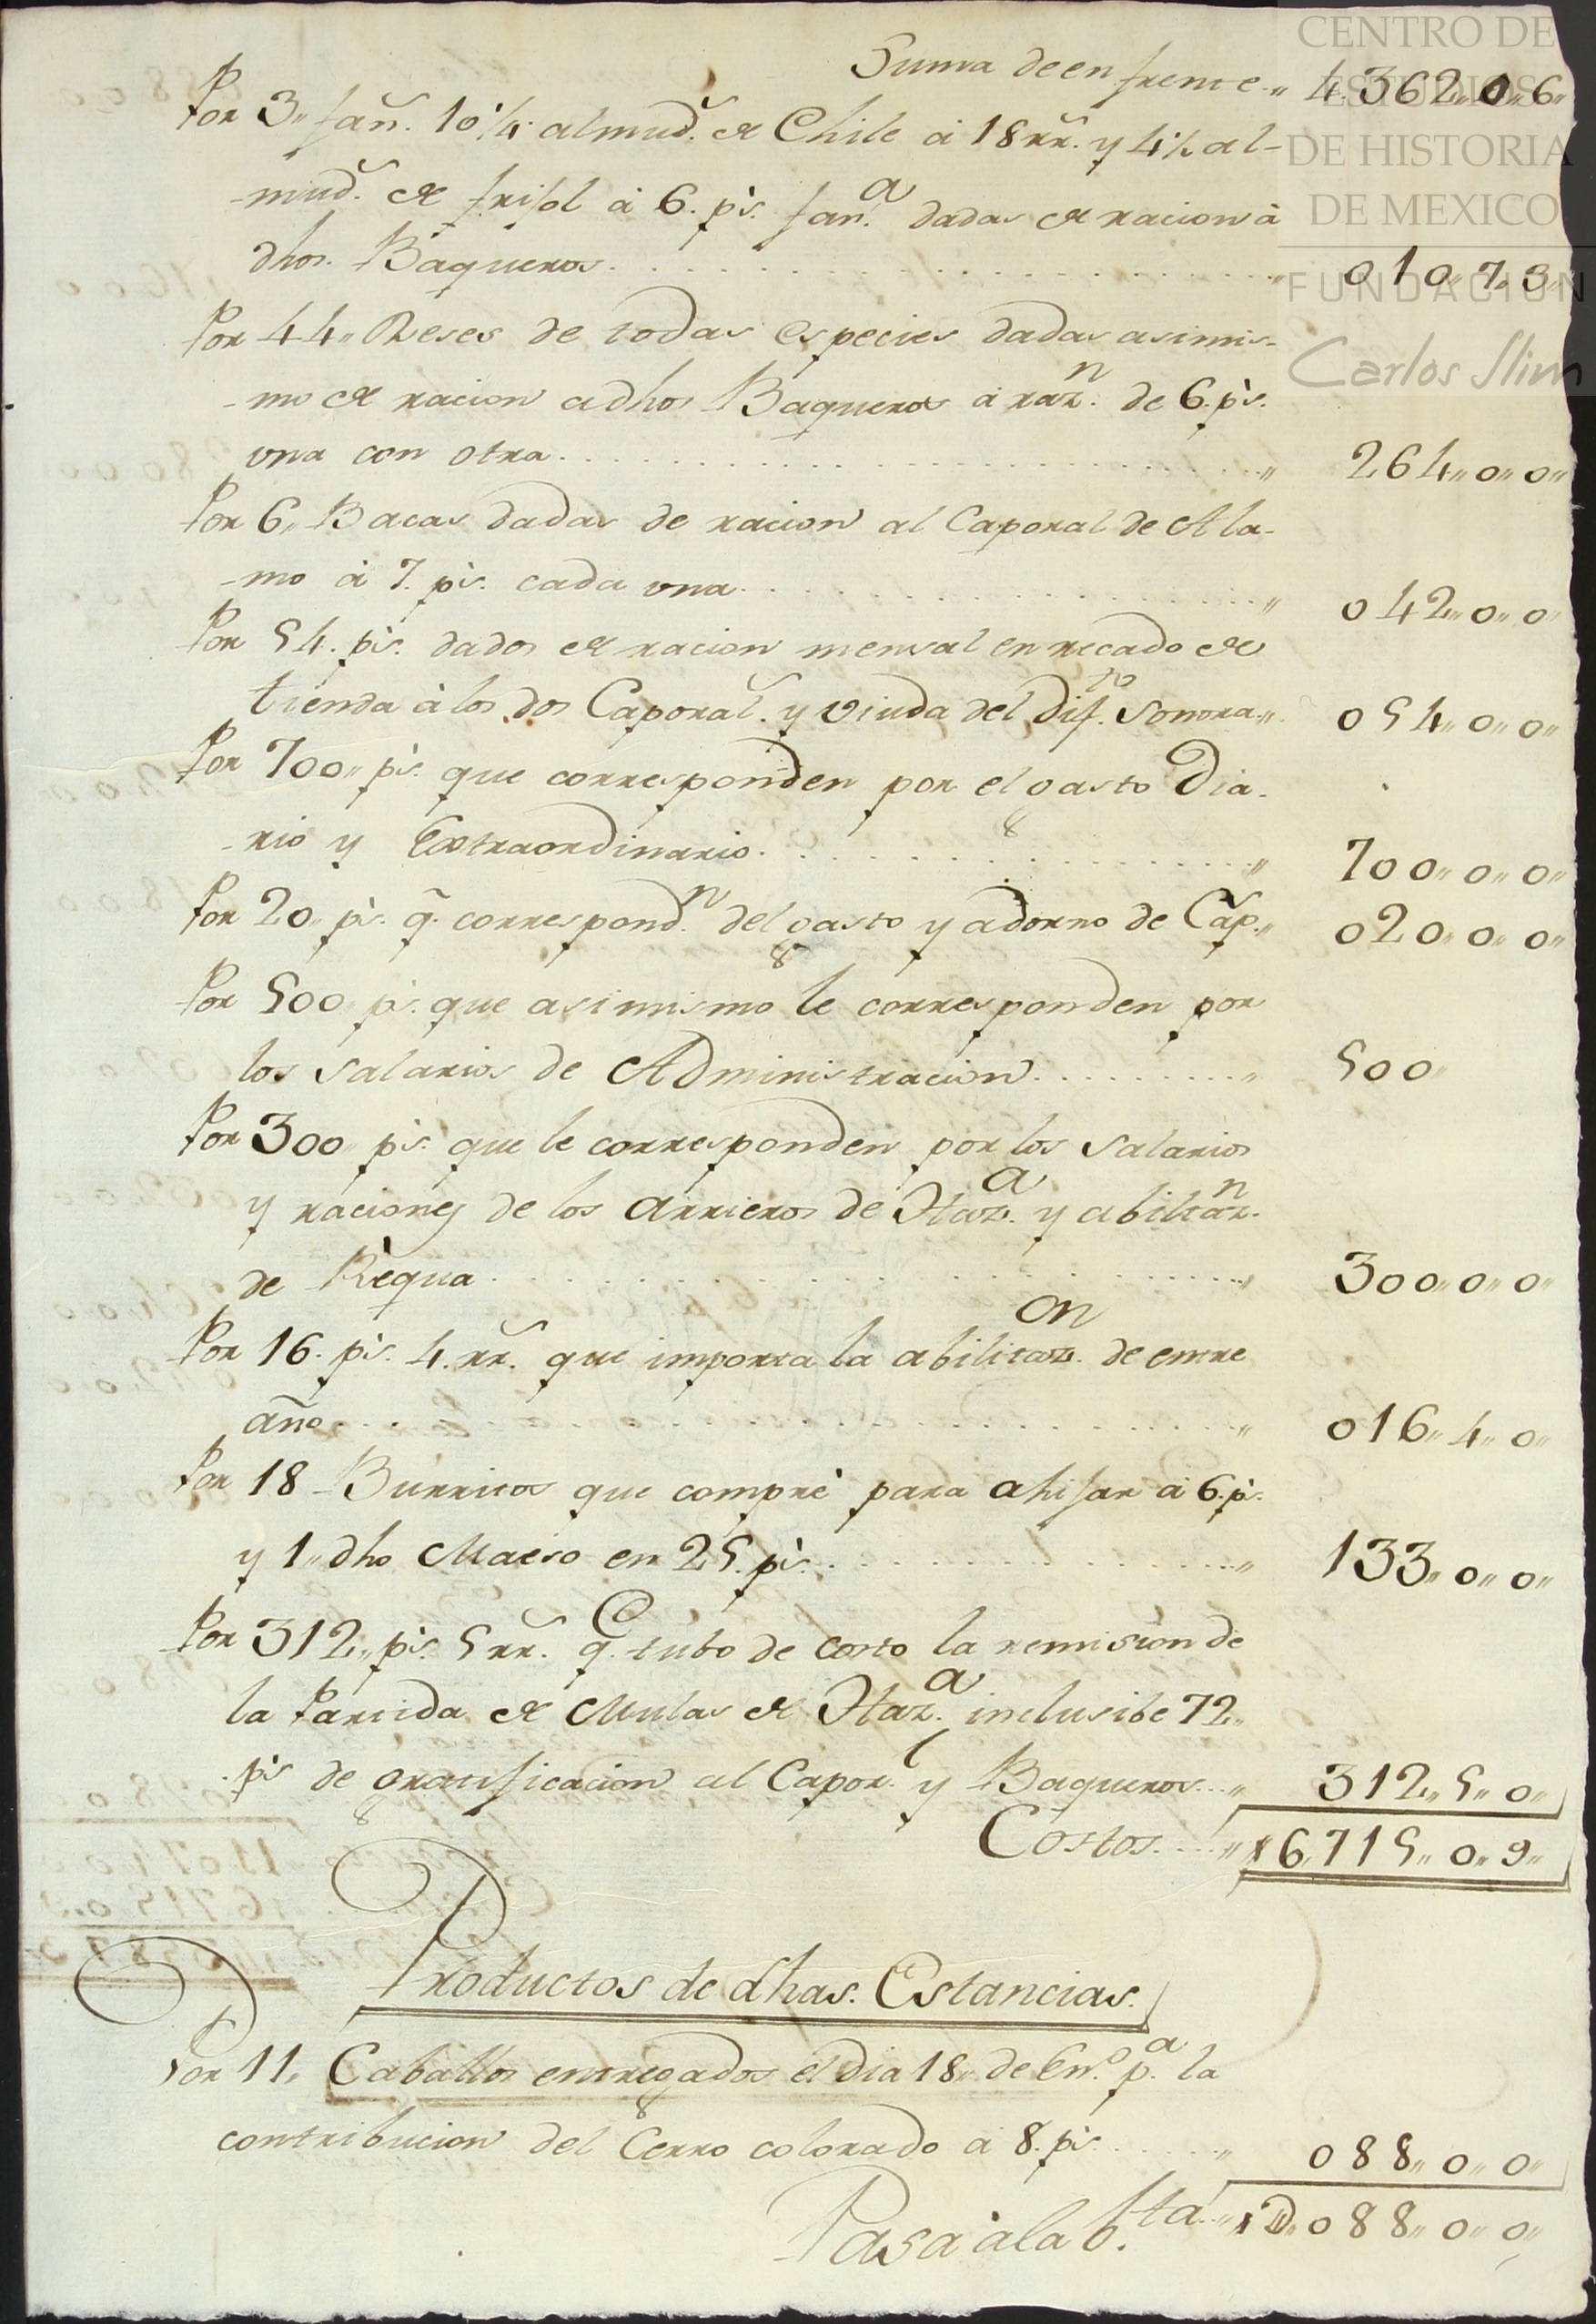 CENTRO DE
ESTUDIOS
DE HISTORIA
DE MEXICO
FUNDACION
Carlos Slim
Suma de en frente.. 4.362,, 0,, 6,,
Por 3,, fañ. 10 1/4 almud.s de Chile à 18 rr.s y 4 1/2 al-
-mud.s de frisol à 6. p.s fan.a dadas de racion à
dhos. Baqueros . . . ,, 010,, 7,, 3,,
Por 44,, Reses de todas especies dadas asimis-
-mo de racion adhos Baqueros à raz.n de 6. p.s
una con otra . . . ,, 264,, 0,, 0,,
Por 6,, Bacas dadas de racion al Caporal de Ala-
-mo à 7. p.s cada una . . . ,, 042,, 0,, 0,,
Por 54. p.s dados de racion mensal en recado de
tienda à los dos Caporal.s y viuda del dif.to Sonora ,, 054,, 0,, 0,,
Por 700,, p.s que corresponden por el gasto Dia-
-rio y Extraordinario . . . ,, 700,, 0,, 0,,
Por 20,, p.s q.e correspond.n del gasto y adorno de Cap.,, 020,, 0,, 0,,
Por 500 p.s que asimismo le corresponden por
los salarios de Administracion . . . ,, 500,,
Por 300,, p.s que le corresponden por los salarios
y raciones de los arrieros de Haz.a y abilitaz.n
de Rèqua . . . ,, 300,, 0,, 0,,
Por 16. p.s 4. rr.s que importa la abilitaz.on de entre
año . . . ,, 016,, 4,, 0,,
Por 18 Burricos que comprè para ahijar à 6. p.s
y 1,, dho Maeso en 25. p.s . . . ,, 133,, 0,, 0,,
Por 312,, p.s 5 rr.s q.e tubo de costo la remision de
la Partida de Mulas de Haz.a inclusibe 72,,
p.s de gratificacion al Capor.l y Baqueros . . ,, 312,, 5,, 0,,
Costos . . . ,, 6.715,, 0,, 9,,
Productos de dhas. Estancias.
Por 11,, Caballos entregados el dia 18,, de En.o p.a la
contribucion del Cerro colorado à 8. p.s . . . ,, 088,, 0,, 0,,
Pasa à la b.lta ,, 088,, 0,, 0,,